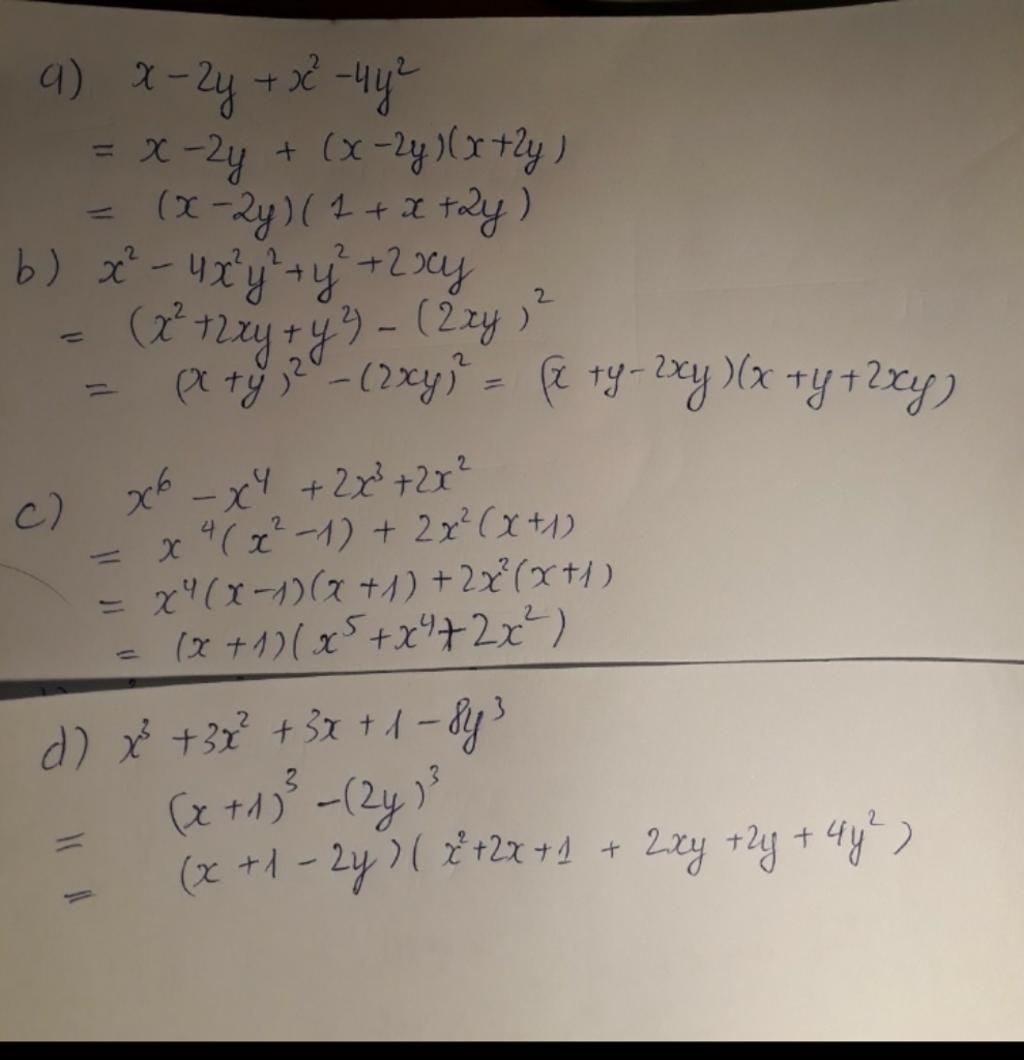 a) x - 2y + x² - 4y²
= x - 2y + (x - 2y)(x + 2y)
= (x - 2y)(1 + x + 2y)
b) x² - 4x²y² + y² + 2xy
= (x² + 2xy + y²) - (2xy)²
= (x + y)² - (2xy)² = (x + y - 2xy)(x + y + 2xy)
c) x⁶ - x⁴ + 2x³ + 2x²
= x⁴(x² - 1) + 2x²(x + 1)
= x⁴(x - 1)(x + 1) + 2x²(x + 1)
= (x + 1)(x⁵ + x⁴ + 2x²)
d) x³ + 3x² + 3x + 1 - 8y³
= (x + 1)³ - (2y)³
= (x + 1 - 2y)(x² + 2x + 1 + 2xy + 2y + 4y²)